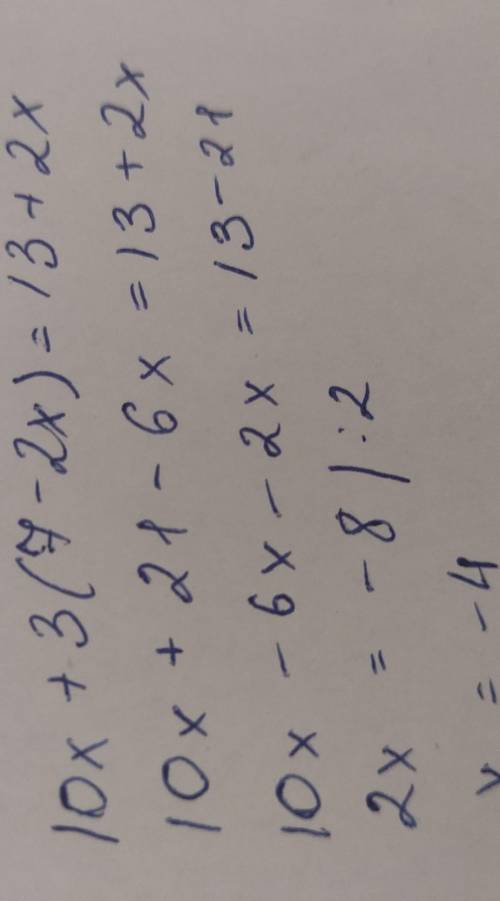 10x + 3(7 - 2x) = 13 + 2x
10x + 21 - 6x = 13 + 2x
10x - 6x - 2x = 13 - 21
2x = -8 | : 2
x = -4